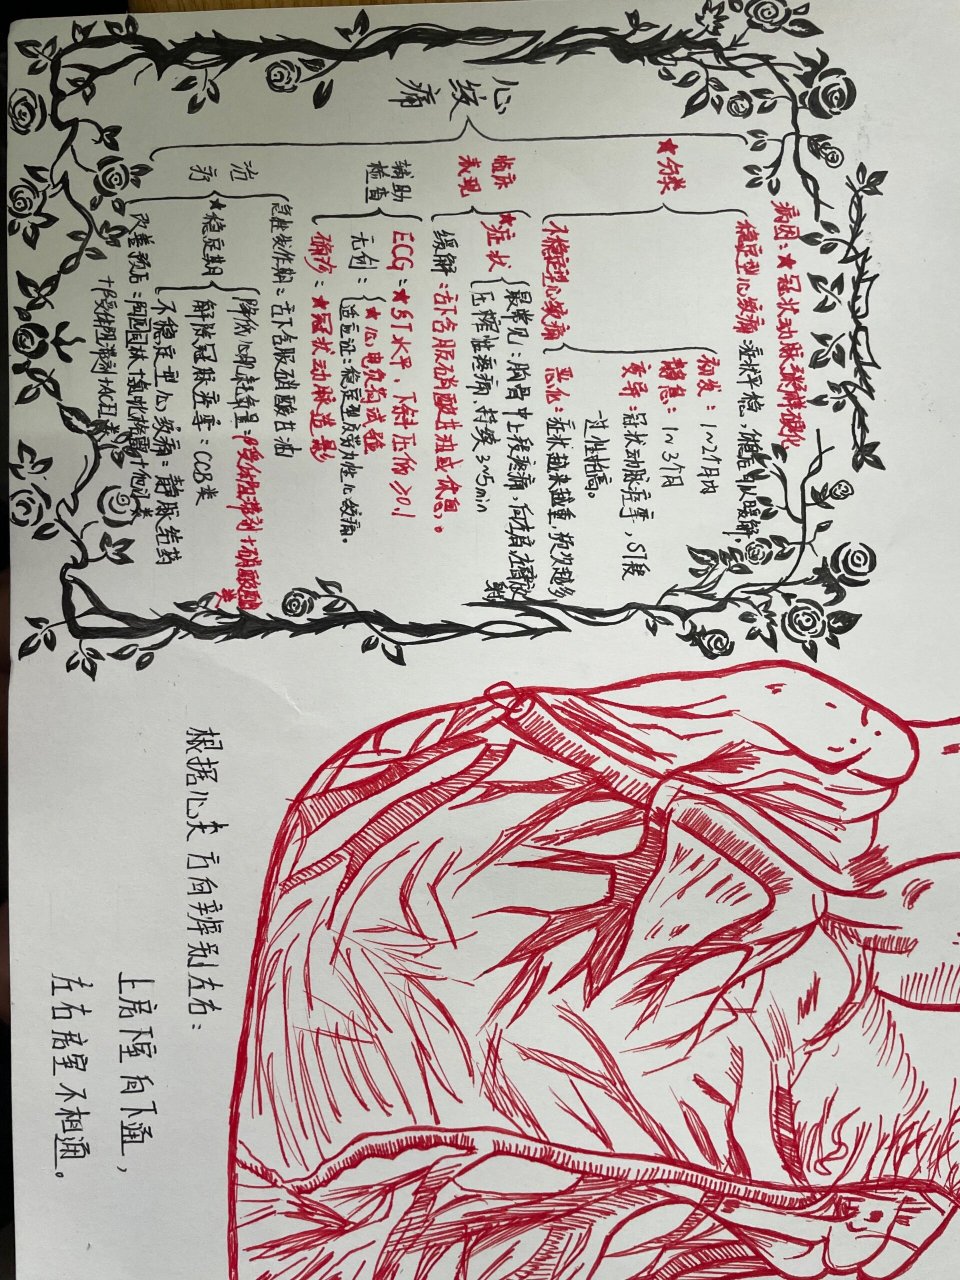 心绞痛
病因：★冠状动脉粥样硬化
★分类
稳定型心绞痛：症状平稳，休息可以缓解。
不稳定型心绞痛
初发：1~2个月内
静息：1~3个月
变异：冠状动脉痉挛，ST段
一过性抬高。
恶化：症状越来越重，频次越多
临床表现
★症状
最常见：胸骨中上段疼痛，向左肩、左臂放射
压榨性疼痛，持续3~5min
缓解：舌下含服硝酸甘油或休息。
辅助检查
ECG：★ST水平，下斜压价≥0.1
无创：
★心电负荷试验
适应证：稳定型及劳力性心绞痛。
确诊：★冠状动脉造影
治疗
急性发作期：舌下含服硝酸甘油
★稳定期
降低心肌耗氧量：β受体阻滞剂+硝酸酯类
解决冠脉痉挛：CCB类
不稳定型心绞痛：静脉给药
改善预后：阿司匹林+氯吡格雷+他汀类
+β受体阻滞剂+ACEI类
根据心尖方向辨别左右：
上房下室向下通，
左右房室不相通。